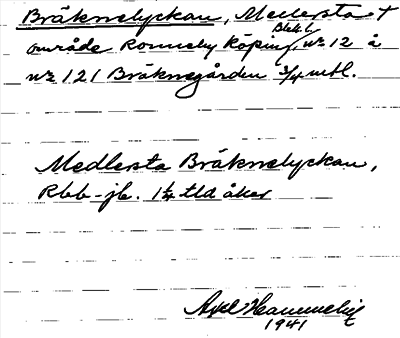 Bräknelyckan, Medlersta +
Blek. l.
område Ronneby köping, nr 12 å
nr 121 Bräknegården 3/4 mtl.
Medlersta Bräknelyckan,
Rbb-jb. 1 1/4 tld åker
Axel Hammelin
1941